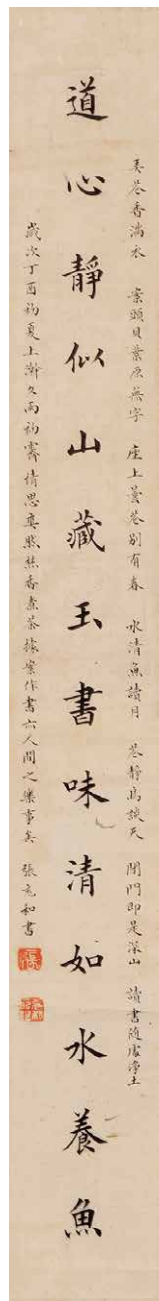 弄花香滿衣 案頭貝葉原無字 座上曇花別有春 水清魚讀月 花靜鳥談天 閉門即是深山 讀書隨處淨土
道心靜似山藏玉書味清如水養魚
歲次丁酉初夏上澣久雨初霽情思爽然焚香煮茶據案作書亦人間之樂事矣 張充和書
張